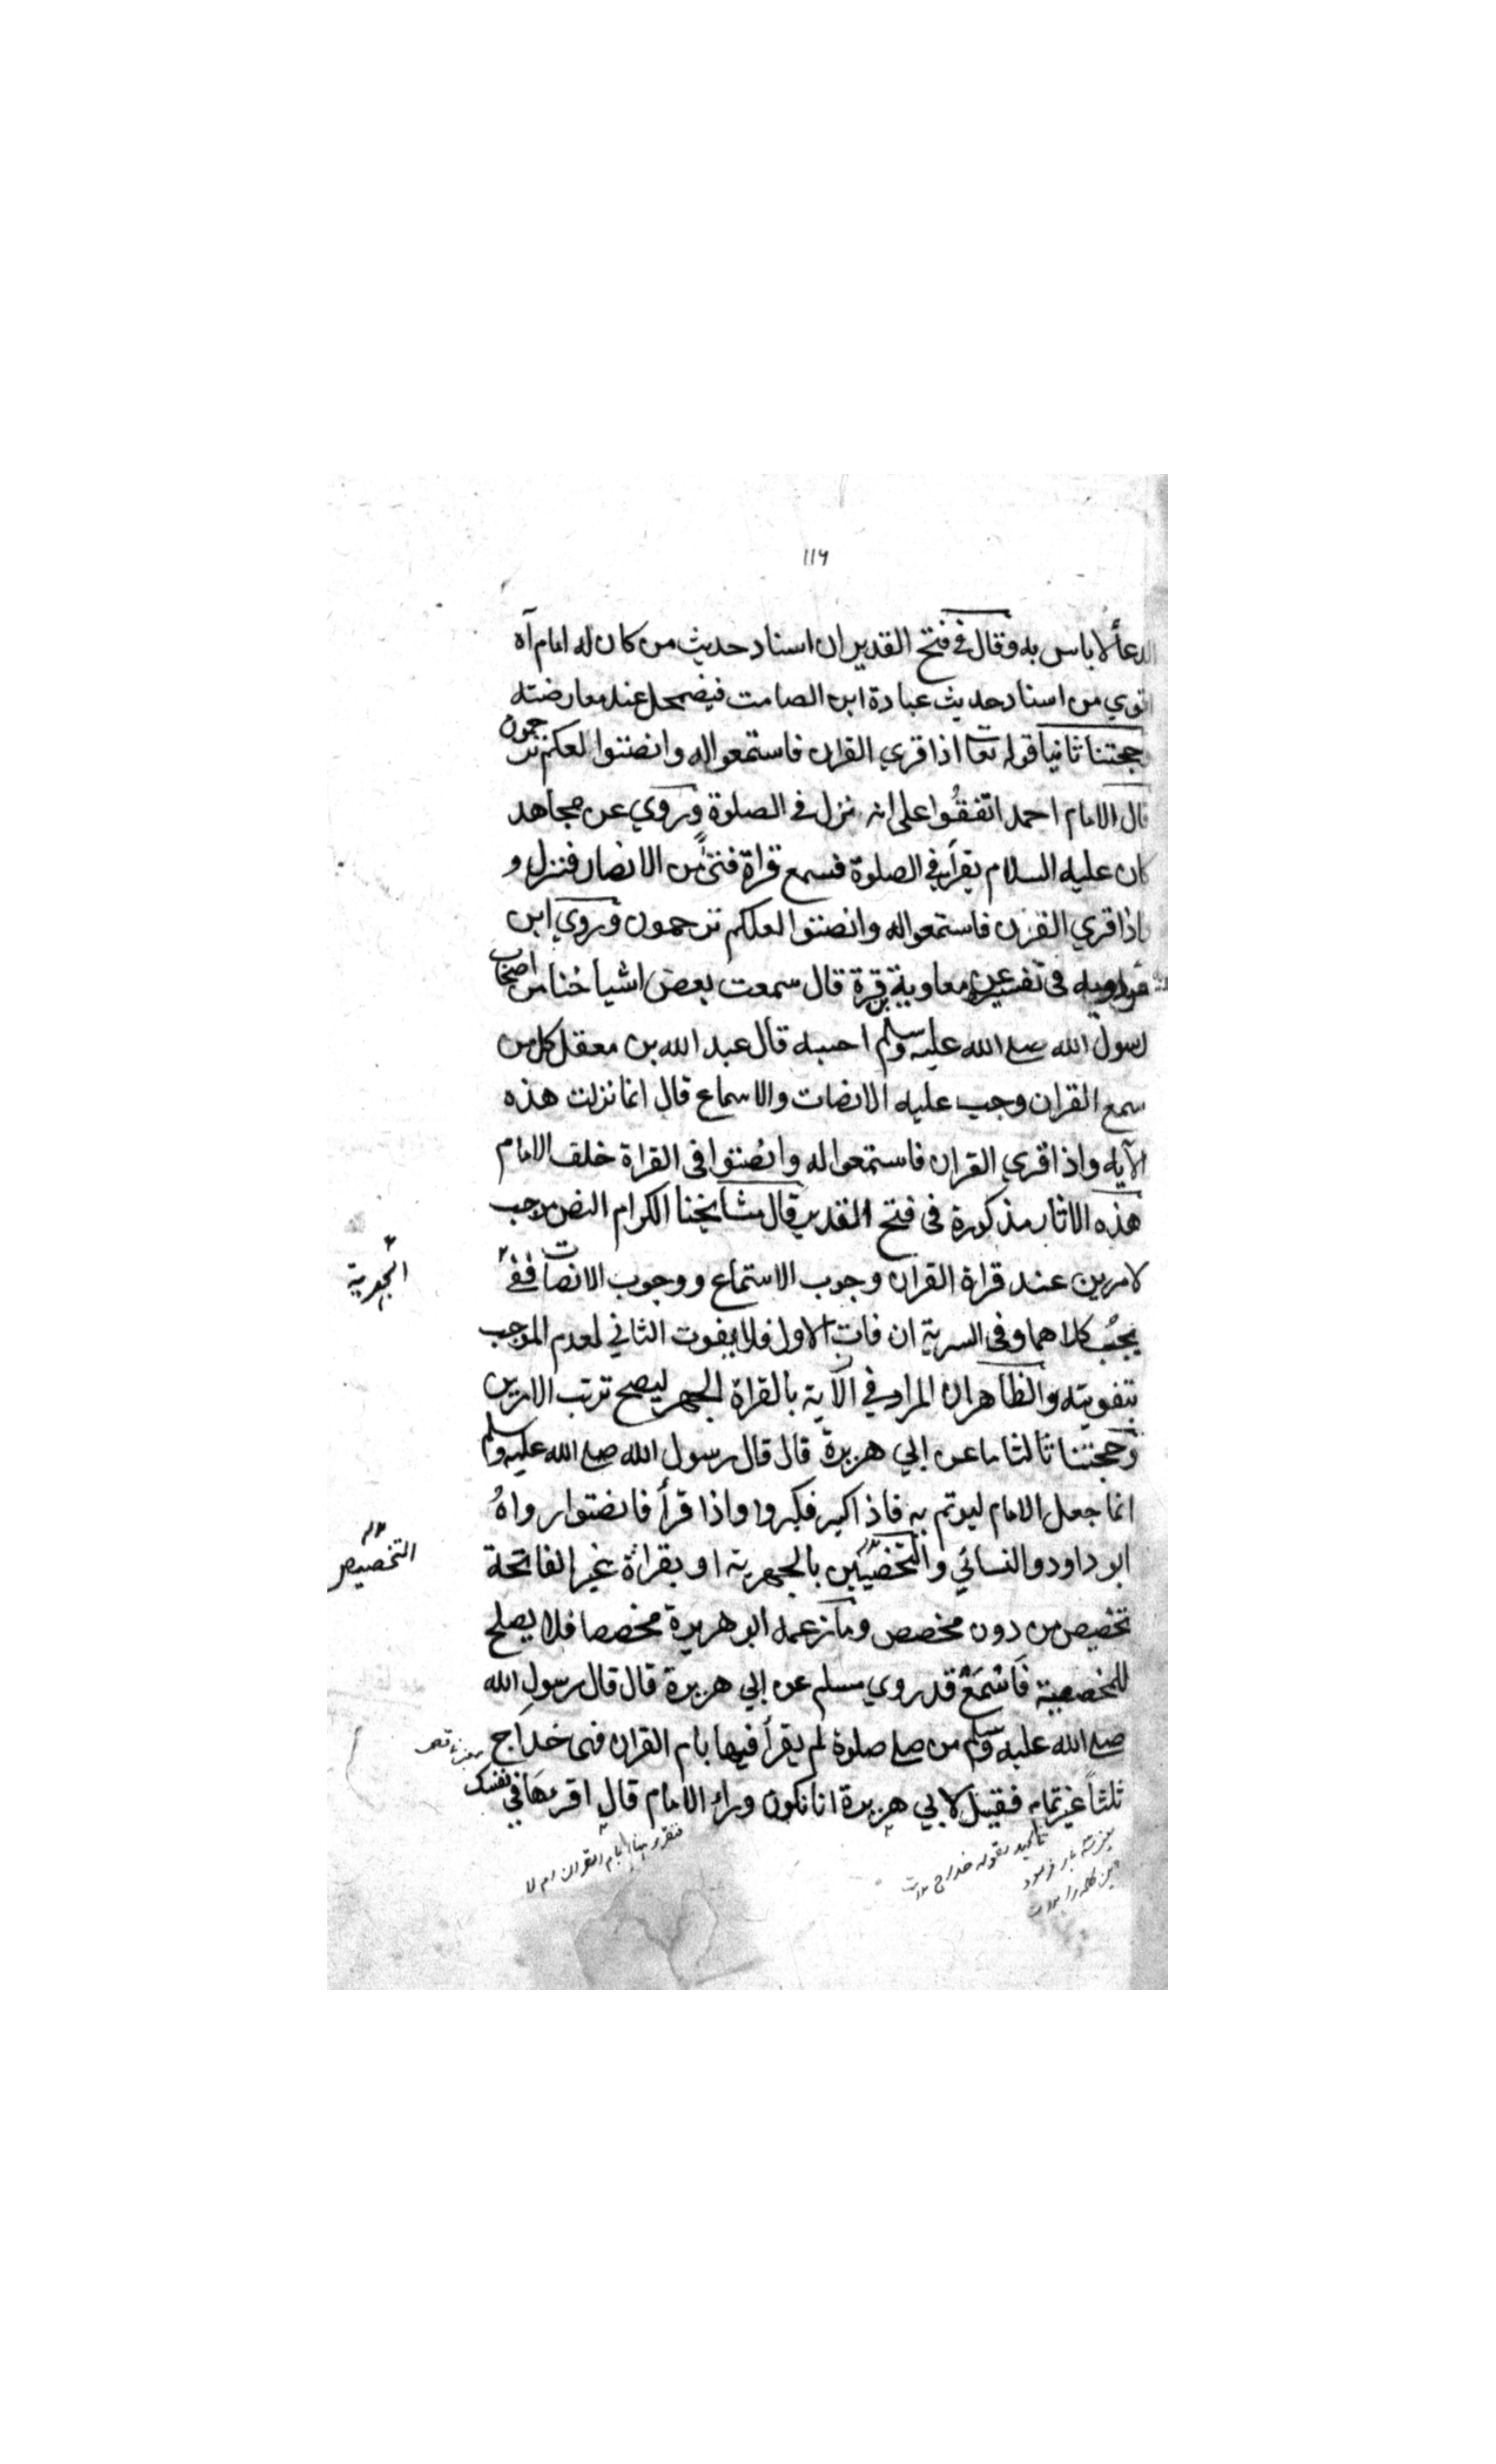 ۱۱۶
الدعأ لا باس به وقال في فتح القدير ان اسناد حديث من كان له امام آه
اقوي من اسناد حديث عبادة ابن الصامت فيضمحل عند معارضته
حجتنا ثانيا قوله تعا اذا قري القران فاستمعوا له وانصتوا لعلكم ترحمون
قال الامام احمد اتفقُوا على انه نزل في الصلوة وروي عن مجاهد
كان عليه السلام يقرأ في الصلوة فسمع قراة فتىً من الانصار فنزل و
اذا قري القرن فاستمعوا له وانصتوا لعلكم ترحمون وروي ابن
مردويه في تفسيره عن معاوية بن قرة قال سمعت بعض اشياخُنا من اصحاب
رسول الله صلے الله عليه وسلم احسبه قال عبد الله بن معقل كل من
سمع القران وجب عليه الانصات والاسماع قال انما نزلت هذه
الآيه واذا قري القران فاستمعوا له وانصتوا في القراة خلف الامام
هذه الاثار مذكورة في فتح القدير قال مشايخنا الكرام النص موجب
لامرين عند قراة القران وجوب الاستماع ووجوب الانصات ففي
الجهرية
يجبُ كلاهما وفي السرية ان فات الاول فلا يفوت الثاني لعدم الموجب
بتفويته والظاهر ان المراد في الآية بالقراة الجهر ليصح ترتب الامرين
وحجتنا ثالثا ما عن ابي هريرة قال قال رسول الله صلے الله عليه وسلم
انما جعل الامام ليوتم به فاذا كبر فكبروا واذا قرأ فانصتوا رواهُ
ابو داود والنسائي والتخصيص بالجهرية او بقراة غير الفاتحة
التخصيص
تخصيص من دون مخصص وما زعمه ابو هريرة مخصصا فلا يصلح
للمخصصية فَاسْمَعْ قد روي مسلم عن ابي هريرة قال قال رسول الله
صلے الله عليه وسلم من صلے صلوة لم يقرأ فيها بام القران فهى خداج
ثلثاً غير تمام فقيل لابي هريرة انا نكون وراء الامام قال اقرءهَا في نفسك
بام القران ام لا
تاكيد لقوله خداج